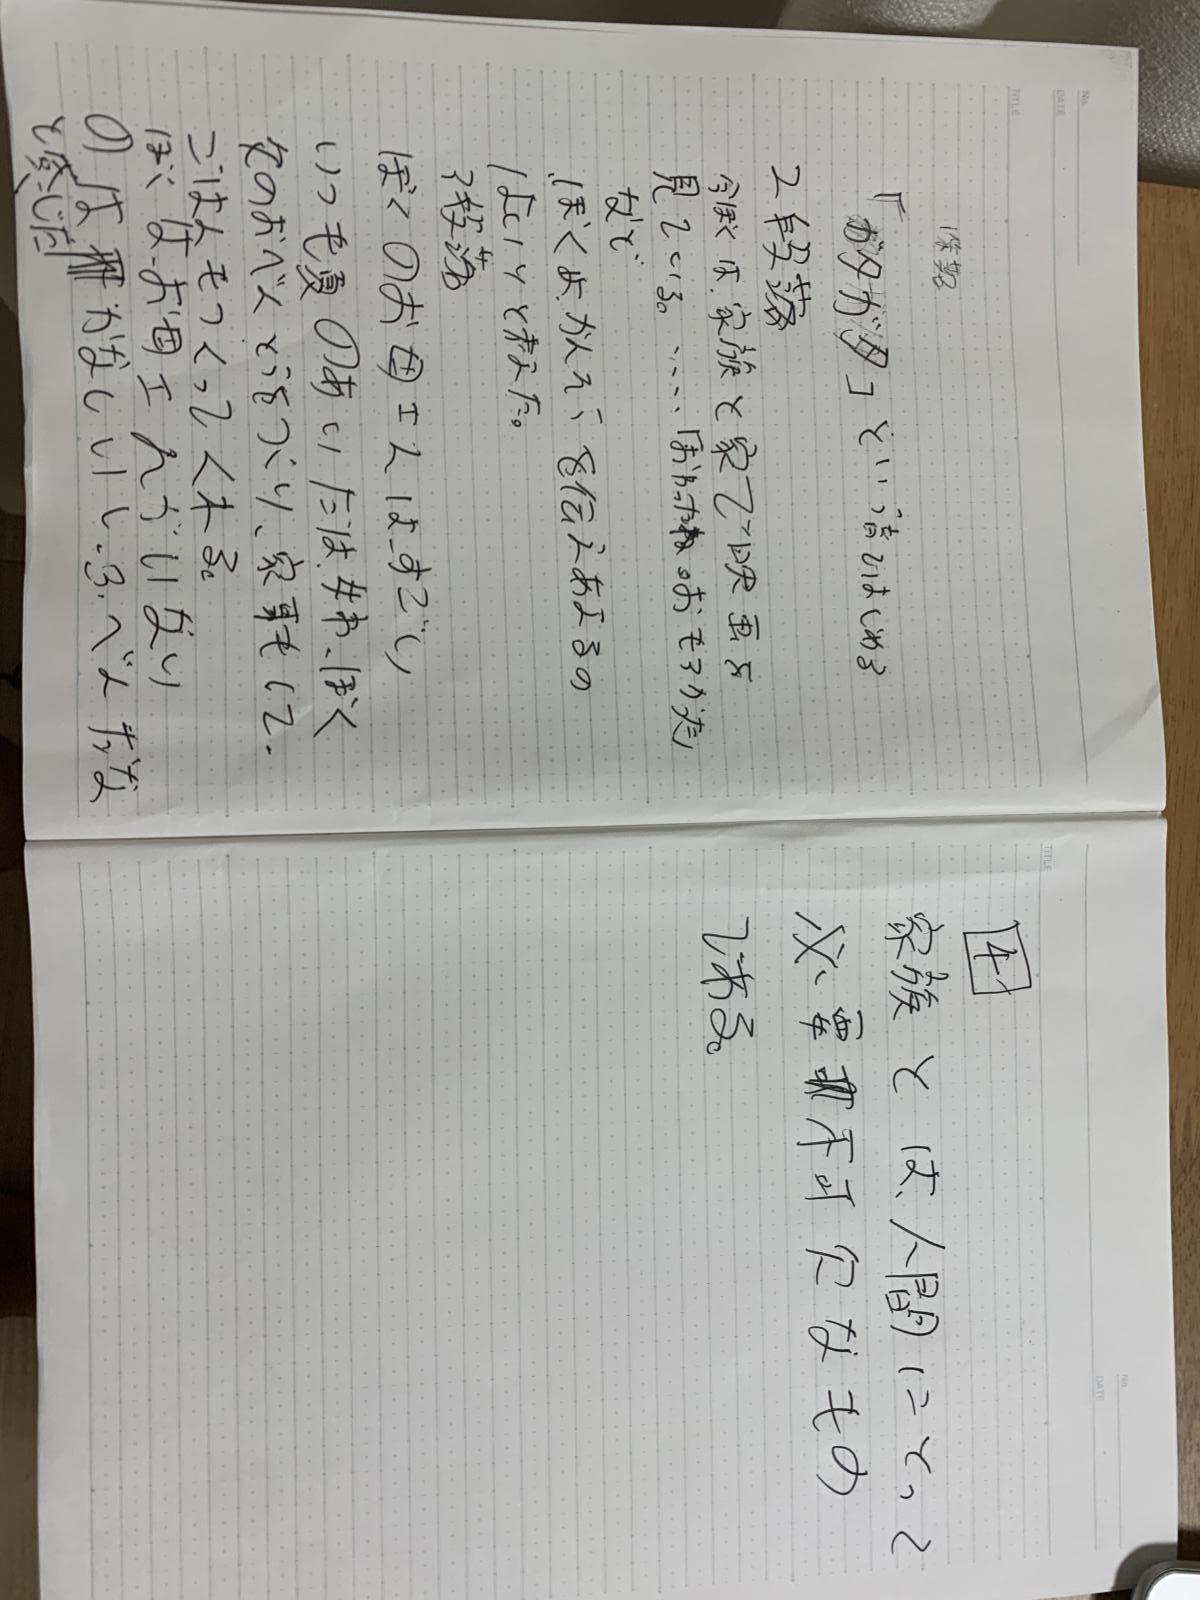 No.
DATE
TITLE
「ガタガタ」という音ではじめる
2段落
今ぼくは、家族と家で映画を
見ている。……「おわったね。おもろかった」
など
ぼくは、かんそうを伝えあえるの
はいいと考えた。
3段落
ぼくのお母さんは、すごい
いつも夏のあいだは、妹、ぼく
父のおべんとうをつくり、家事もして、
ごはんもつくってくれる。
ぼくは、お母さんがいない
のは、かなしいし、ふべんだな
と感じた
No.
DATE
TITLE
4
家族とは、人間にとって
必要不可欠なもの
である。